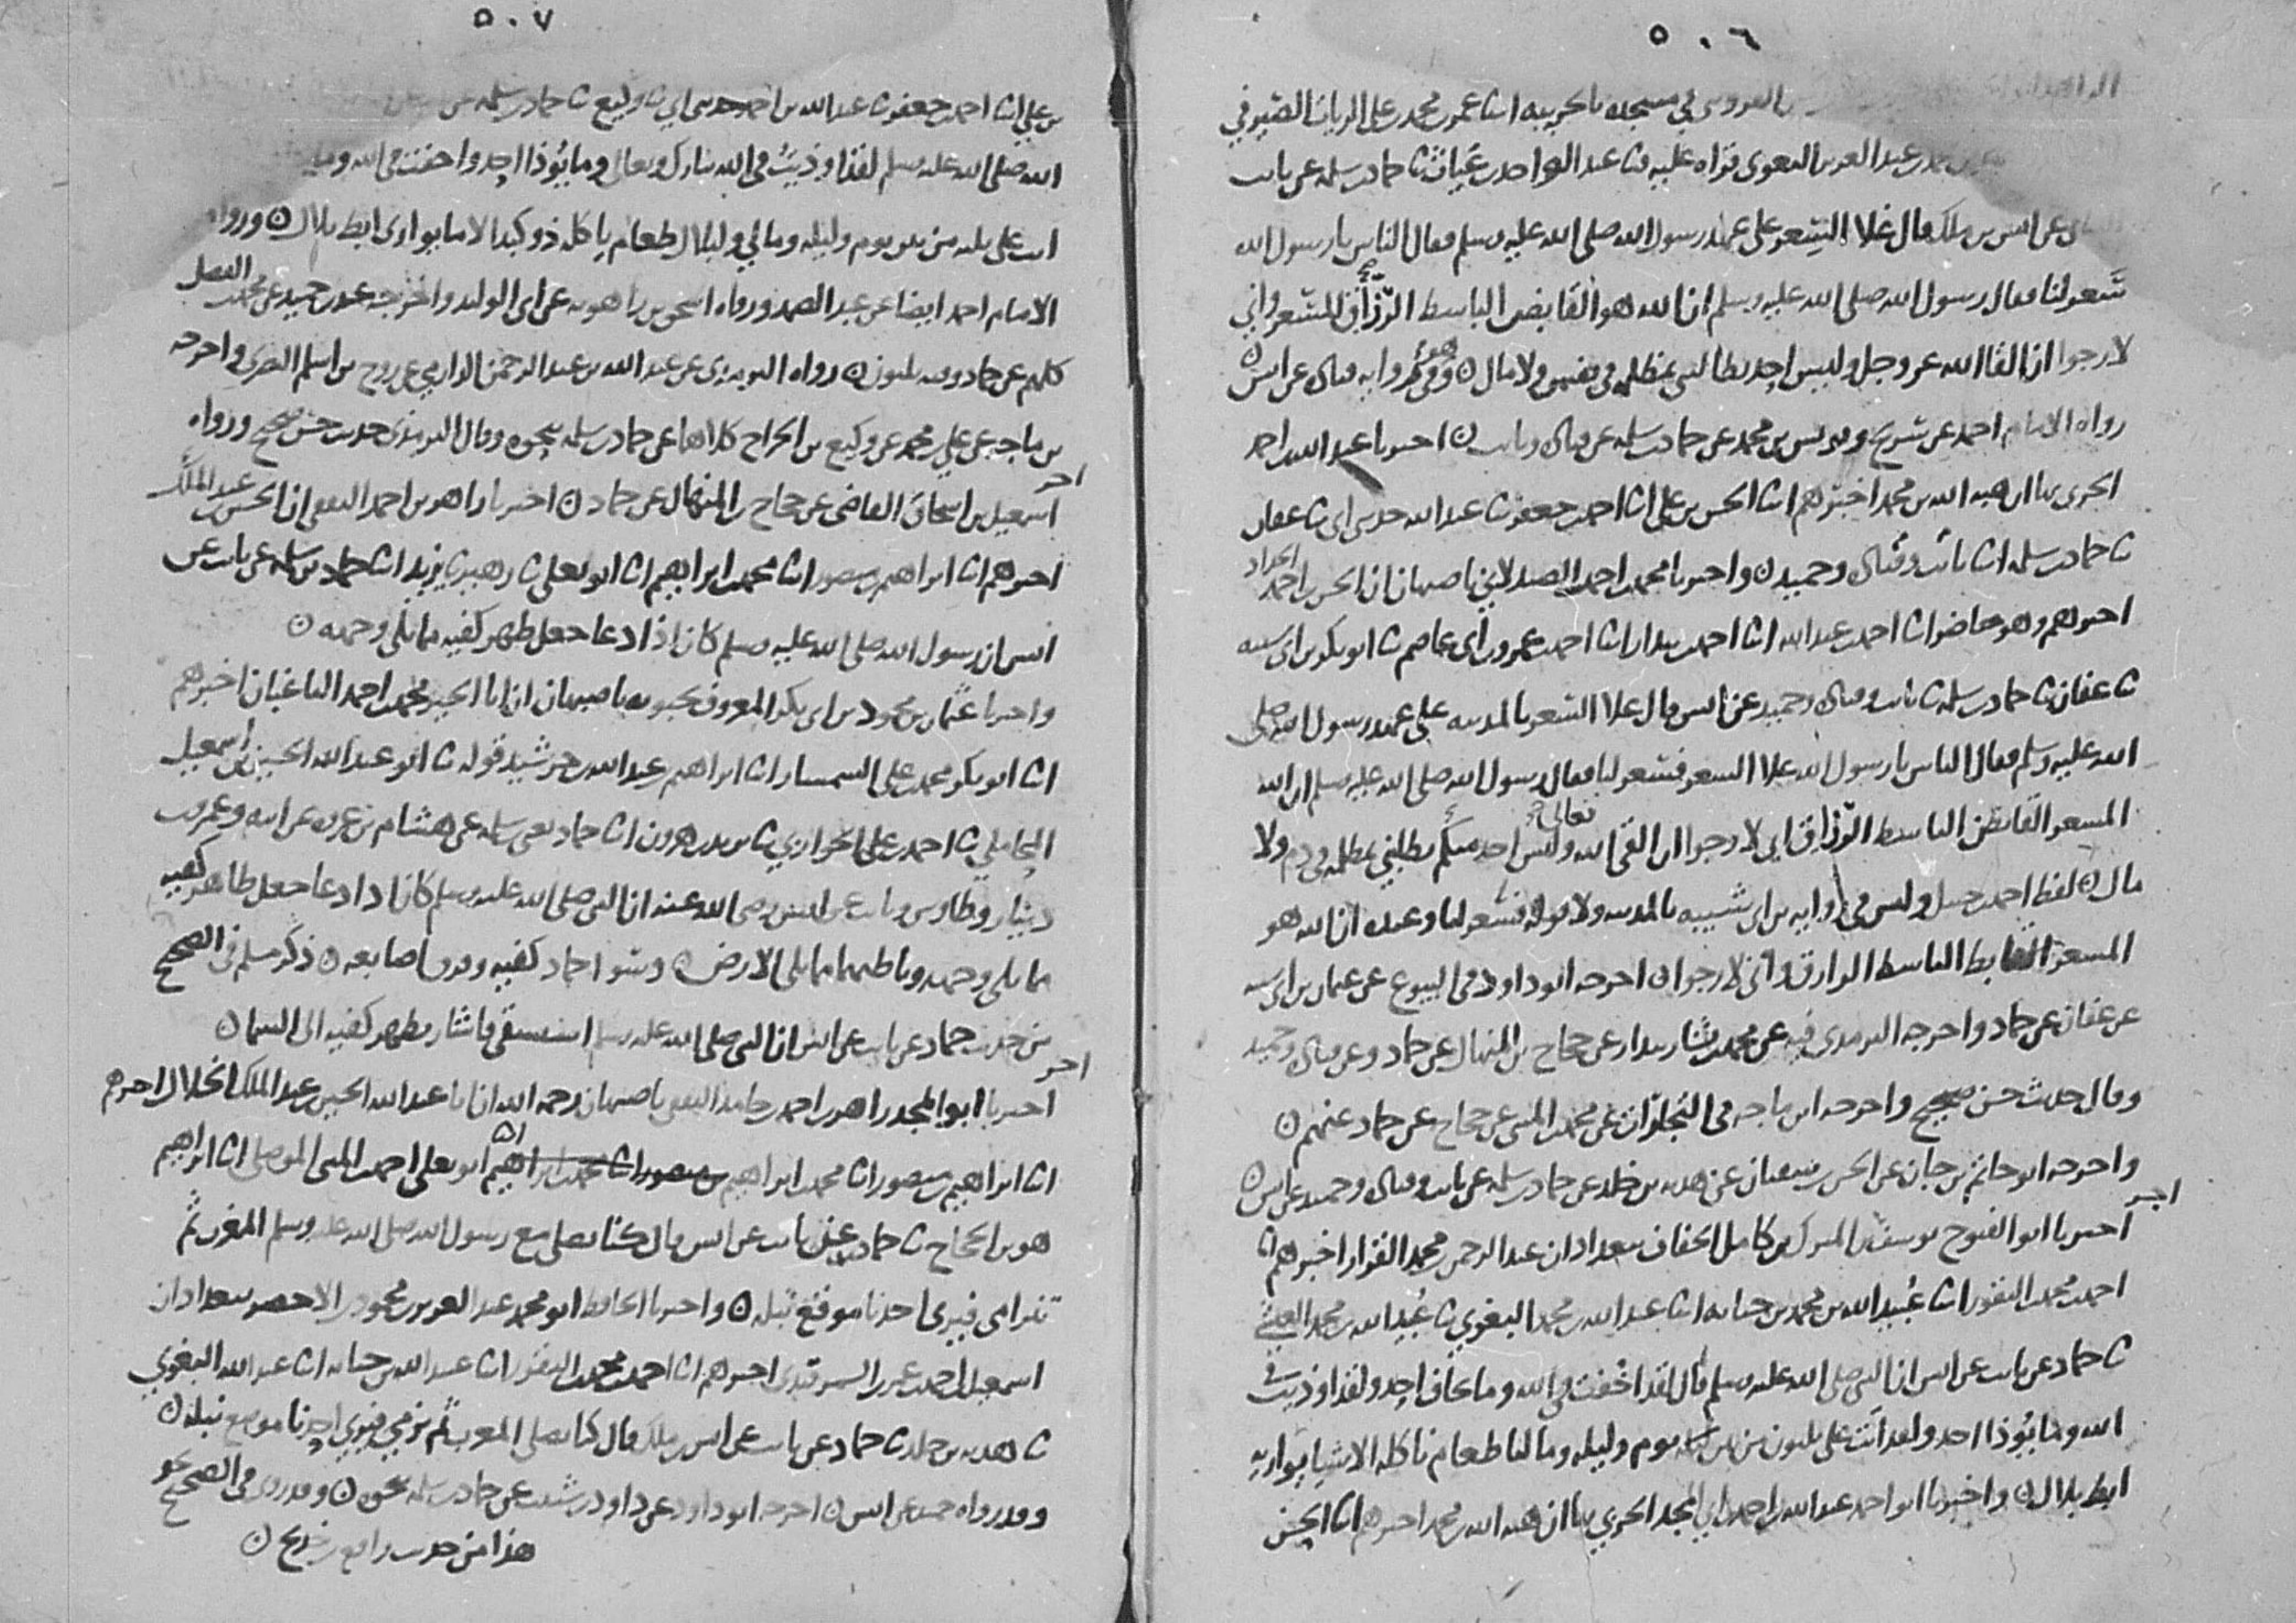 ٥٠٦
العروس في مسجده بالحربيه انا عمر بن محمد بن علي الزيات الصيرفي
بن عبد العزيز البغوي قراه عليه ثنا عبد الواحد بن غياث ثنا حماد بن سلمه عن ثابت
عن انس بن ملك قال غلا السعر على عهد رسول الله صلى الله عليه وسلم فقال الناس يا رسول الله
سعر لنا فقال رسول الله صلى الله عليه وسلم ان الله هو القابض الباسط الرزاق المسعر واني
لارجوا ان القا الله عز وجل وليس احد يطالبني بمظلمه في نفس ولا مال ه وفي روايه قتاده عن انس ه
رواه الامام احمد عن سريج ويونس بن محمد عن حماد بن سلمه عن قتاده وثابت ه اخبرنا عبد الله بن احمد
الحربي بها ان هبه الله بن محمد اخبرهم ابنا الحسن بن علي ابنا احمد بن جعفر ثنا عبد الله حدثني ابي ثنا عفان
ثنا حماد بن سلمه ابنا ثابت وقتاده وحميد ه واخبرنا محمد بن احمد الصيدلاني باصبهان ان الحسن بن احمد الحداد
اخبرهم وهو حاضر ابنا احمد بن عبد الله ابنا احمد بن بندار ابنا احمد بن عمرو بن ابي عاصم ثنا ابو بكر بن ابي شيبه
ثنا عفان ثنا حماد بن سلمه ثنا ثابت وقتاده وحميد عن انس قال غلا السعر بالمدينه على عهد رسول الله صلى
الله عليه وسلم فقال الناس يا رسول الله غلا السعر فسعر لنا فقال رسول الله صلى الله عليه وسلم ان الله
المسعر القابض الباسط الرزاق اني لارجوا ان القى الله تعالى وليس احد منكم يطلبني بمظلمه في دم ولا
مال ه لفظ احمد بن حنبل وليس في روايه بن ابي شيبه بالمدينه ولا قوله فسعر لنا وعنده ان الله هو
المسعر القابض الباسط الرازق واني لارجوا ه اخرجه ابو داود في البيوع عن عثمان بن ابي شيبه
عن عفان عن حماد واخرجه الترمذي فيه عن محمد بن بشار بندار عن حجاج بن المنهال عن حماد وعن قتاده وحميد
وقال حديث حسن صحيح واخرجه ابن ماجه في التجارات عن محمد بن المثنى عن حجاج عن حماد عنهم ه
واخرجه ابو حاتم بن حبان عن الحسن بن سفيان عن هدبه بن خلد عن حماد بن سلمه عن ثابت وقتاده وحميد عن انس ه
اخر
اخبرنا ابو الفتوح يوسف بن المبارك بن كامل الخفاف ببغداد ان عبد الرحمن بن محمد القزاز اخبرهم ابنا
احمد بن محمد بن النقور ابنا عبيد الله بن محمد بن حبابه ابنا عبد الله بن محمد البغوي ثنا عبيد الله بن محمد العيشي
ثنا حماد عن ثابت عن انس ان النبي صلى الله عليه وسلم قال لقد اخفت في الله وما يخاف احد ولقد اوذيت في
الله وما يوذا احد ولقد اتت علي ثلثون من بين يوم وليله وما لنا طعام ناكله الا شي يواريه
ابط بلال ه واخبرنا ابو احمد عبد الله بن احمد بن ابي المجد الحربي بها ان هبه الله بن محمد اخبرهم ابنا الحسن
٥٠٧
بن علي ابنا احمد بن جعفر ثنا عبد الله بن احمد حدثني ابي ثنا وكيع ثنا حماد بن سلمه عن
الله صلى الله عليه وسلم لقد اوذيت في الله تبارك وتعالى وما يوذا احد واخفت في الله وما
اتت علي ثلثه من بين يوم وليله ومالي ولبلال طعام ياكله ذو كبد الا ما يواري ابط بلال ه ورواه
الامام احمد ايضا عن عبد الصمد ورواه اسحق بن راهويه عن ابي الوليد واخرجه عبد بن حميد عن محمد بن الفضل
كلهم عن حماد وفيه ثلثون ه رواه الترمذي عن عبد الله بن عبد الرحمن الدارمي عن روح بن اسلم البصري واخرجه
بن ماجه عن علي بن محمد عن وكيع بن الجراح كلاهما عن حماد بن سلمه بنحوه وقال الترمذي حديث حسن صحيح ورواه
اسمعيل بن اسحاق القاضي عن حجاج بن المنهال عن حماد ه اخر اخبرنا زاهر بن احمد الثقفي ان الحسين بن عبد الملك
اخبرهم ابنا ابراهيم بن منصور ابنا محمد بن ابراهيم ابنا ابو يعلى ثنا زهير ثنا يزيد ابنا حماد بن سلمه عن ثابت عن
انس ان رسول الله صلى الله عليه وسلم كان اذا دعا جعل ظهر كفيه مما يلي وجهه ه
واخبرنا عثمان بن محمود بن ابي بكر المعروف بحبويه باصبهان ان ابا الخير محمد بن احمد الباغبان اخبرهم
ابنا ابو بكر محمد بن علي السمسار ابنا ابراهيم بن عبد الله بن خرشيد قوله ثنا ابو عبد الله الحسين بن اسمعيل
المحاملي ثنا احمد بن علي الخزاز ثنا يزيد بن هرون ابنا حماد يعني بن سلمه عن هشام بن عروه عن ابيه وعمرو بن
دينار وطاوس وثابت عن انس رضي الله عنه ان النبي صلى الله عليه وسلم كان اذا دعا جعل ظاهر كفيه
مما يلي وجهه وباطنهما مما يلي الارض ه ونشر حماد كفيه وفرق اصابعه ه ذكر مسلم في الصحيح
من حديث حماد عن ثابت عن انس ان النبي صلى الله عليه وسلم استسقى فاشار بظهر كفيه الى السما ه
اخر
اخبرنا ابو المجد زاهر بن احمد بن حامد الثقفي باصبهان رحمه الله ان ابا عبد الله الحسين بن عبد الملك الخلال اخبرهم
ابنا ابراهيم بن منصور ابنا محمد بن ابراهيم بن منصور ابنا محمد بن ابراهيم ابنا ابو يعلى احمد بن المثنى الموصلي ابنا ابراهيم
هو بن الحجاج ثنا حماد عن ثابت عن انس قال كنا نصلي مع رسول الله صلى الله عليه وسلم المغرب ثم
نترامى فيرى احدنا موقع نبله ه واخبرنا الحافظ ابو محمد عبد العزيز بن محمود بن الاخضر ببغداد ان
اسمعيل بن احمد بن عمر السمرقندي اخبرهم ابنا احمد بن محمد بن النقور ابنا عبيد الله بن حبابه ابنا عبد الله البغوي
ثنا هدبه بن خلد ثنا حماد عن ثابت عن انس بن ملك قال كنا نصلي المغرب ثم نرمي فيرى احدنا موضع نبله ه
وقد رواه حميد عن انس ه اخرجه ابو داود عن داود بن شبيب عن حماد بن سلمه بنحوه ه وقد روي في الصحيح نحو
هذا من حديث رافع بن خديج ه